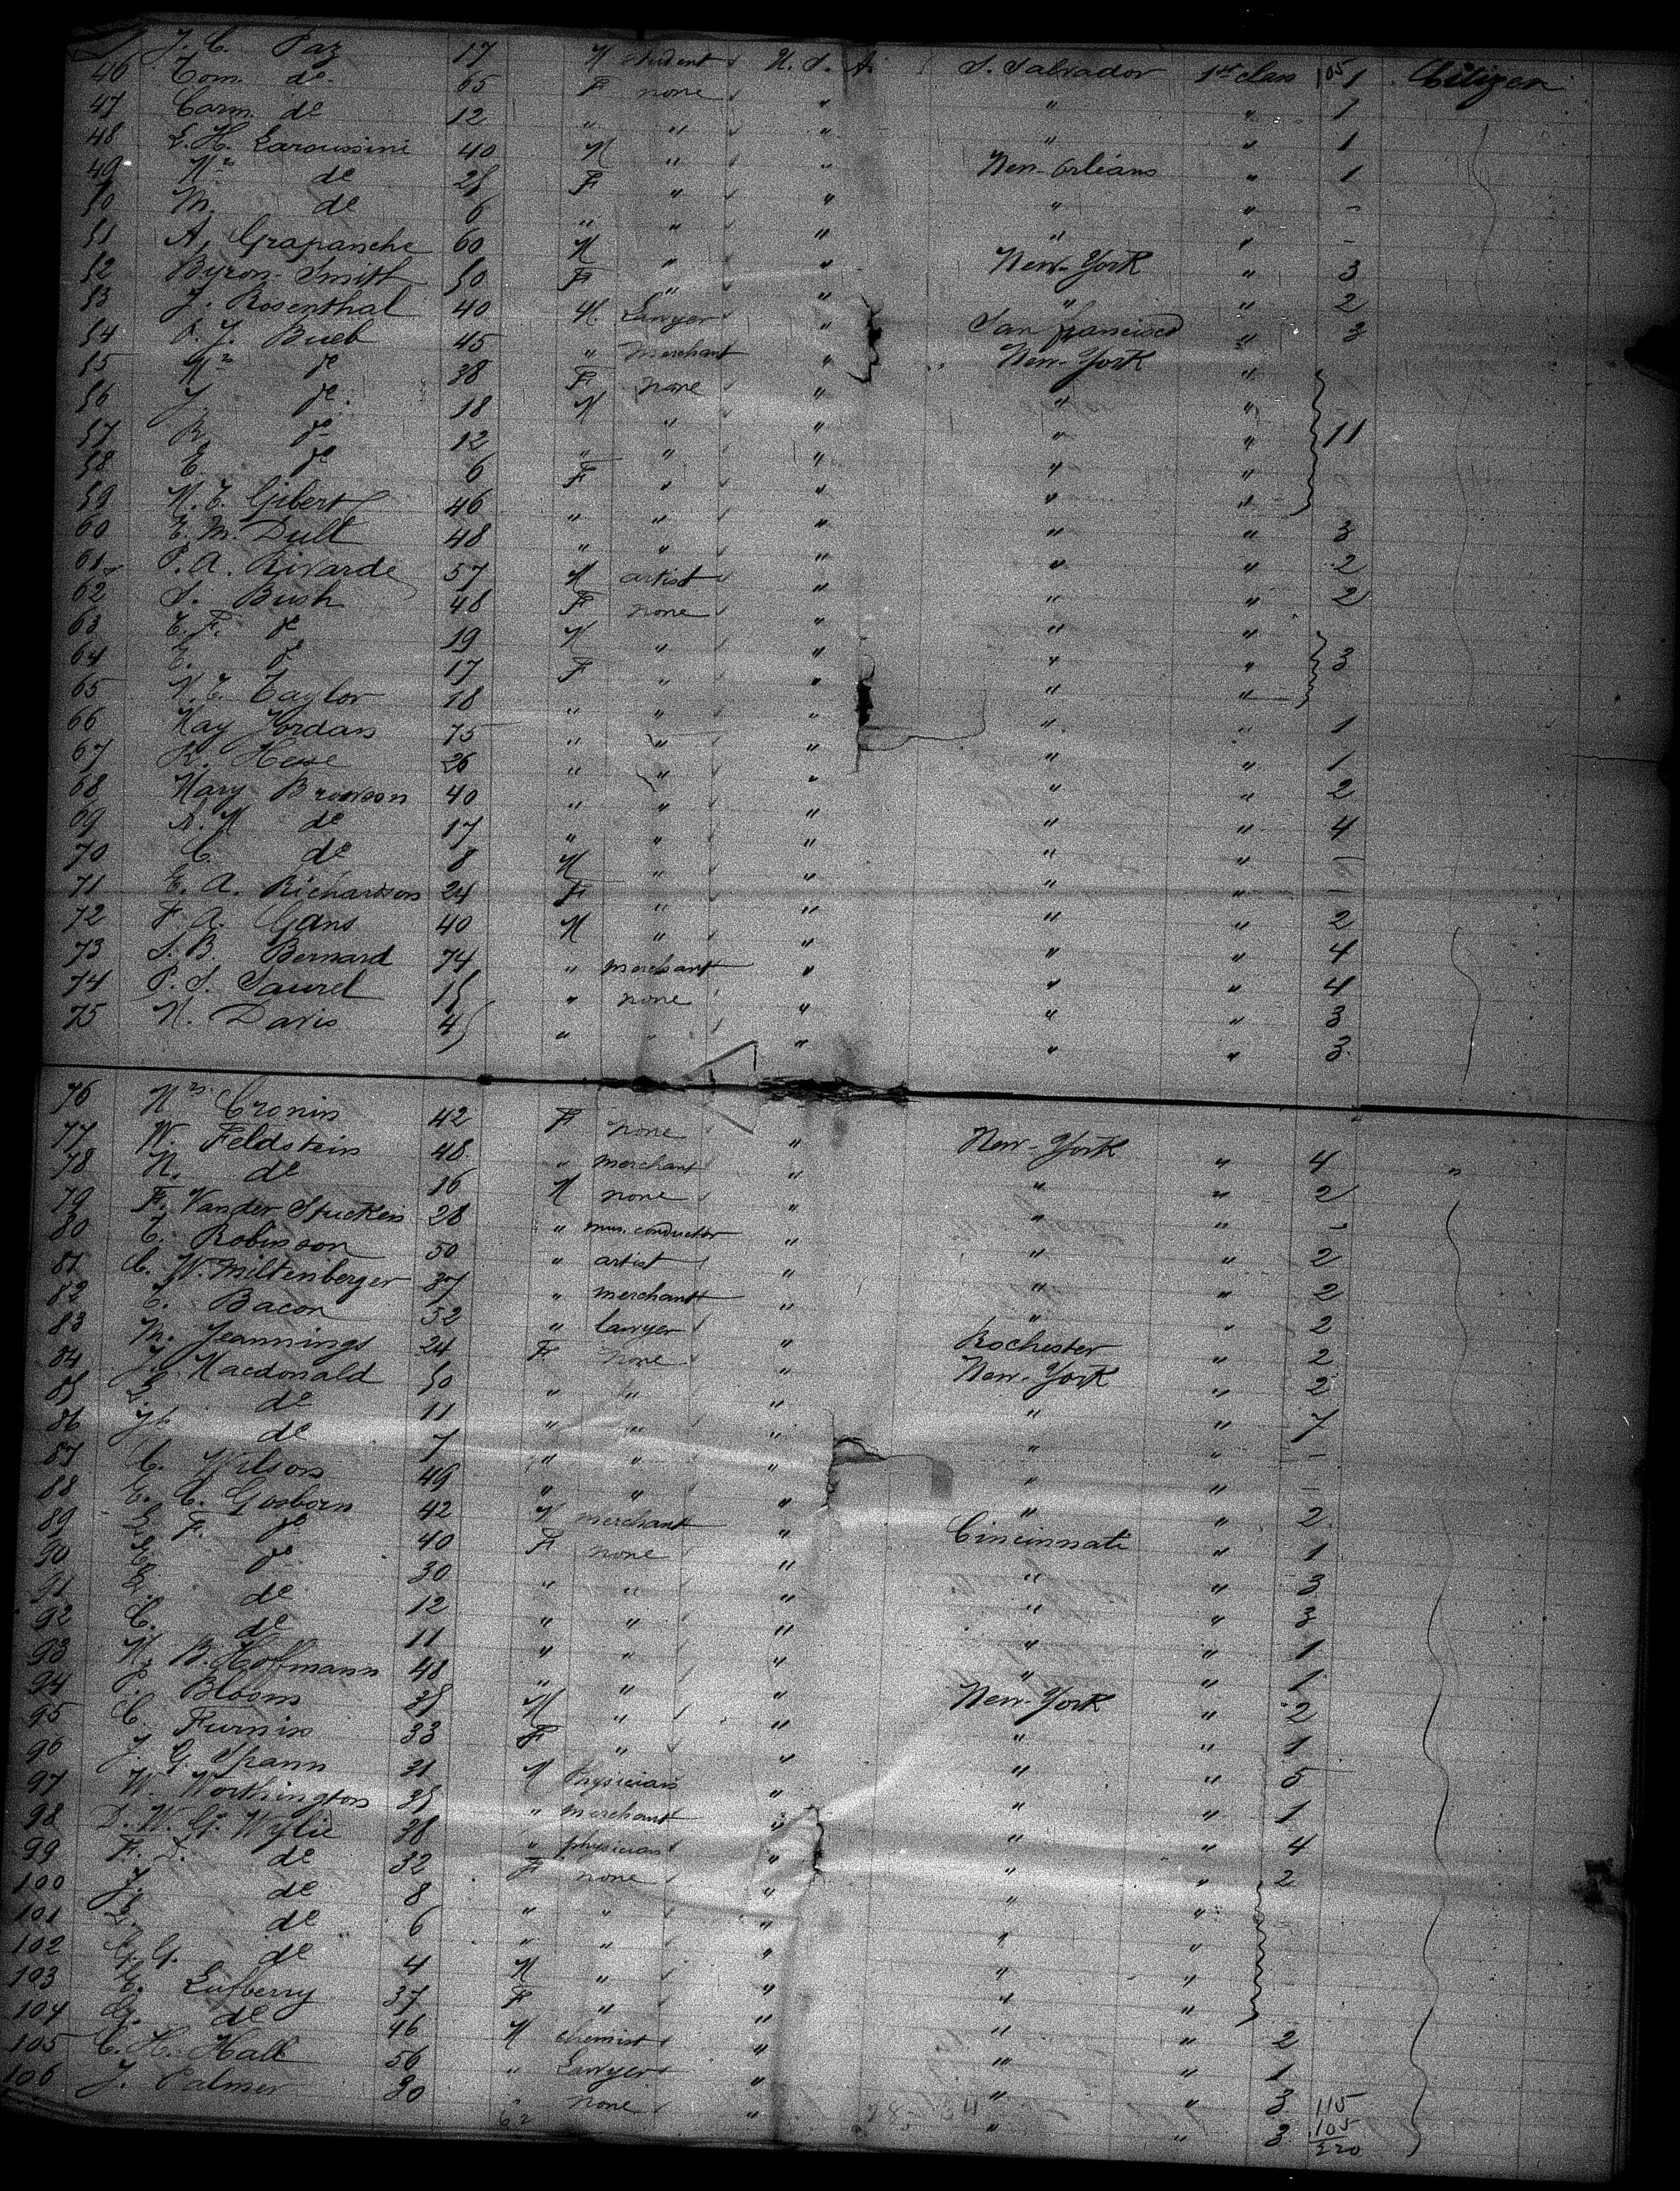 J. C. Paz 17 M student U. S. A. S. Salvador 1st class 105 1 Citizen
46 Tom. do 65 F none " " " 1
47 Carm. do 12 " " " " " 1
48 E. H. Laroussini 40 M " " New-Orleans " 1
49 Mrs do 25 F " " " " -
50 M. do 6 " " " " " -
51 A. Grapanche 60 M " " New-York " 3
52 Byron-Smith 50 F " " " " 2
53 J. Rosenthal 40 M. Lawyer " San francisco " 3
54 O. J. Bueb 45 " merchant " New-York "
55 Mrs do 38 F none " " "
56 J do 18 M " " " " 11
57 R. do 12 " " " " "
58 E. do 6 F " " " "
59 M. E. Gibert 46 " " " " " 3
60 E. M. Dull 48 " " " " " 2
61 P. A. Rivarde 57 M artist " " " 2
62 S. Bush 48 F none " " "
63 E. F. do 19 M " " " " 3
64 E. do 17 F " " " "
65 M. E. Taylor 18 " " " " " 1
66 May Jordan 75 " " " " " 1
67 R. Hesse 26 " " " " " 2
68 Mary Browson 40 " " " " " 4
69 A. M do 17 " " " " " -
70 C. do 8 M " " " " -
71 E. A. Richardson 24 F " " " " 2
72 F. A. Gans 40 M " " " " 4
73 S. B. Bernard 74 " merchant " " " 4
74 P. S. Saurel 15 " none " " " 3
75 M. Davis 45 " " " " " 3.
76 Mrs Cronin 42 F none " New-York " 4 "
77 W. Feldstein 48 " merchant " " " 2
78 N. do 16 M none " " " -
79 F. Vander Stucken 28 " mus. conductor " " " 2
80 T. Robinson 50 " artist " " " 2
81 C. W. Miltenberger 37 " merchant " " " 2
82 E. Bacon 52 " lawyer " Rochester " 2
83 M. Jeannings 24 F. none " New-York " 2
84 J. Macdonald 50 " " " " " 7
85 L. do 11 " " " " " -
86 do 7 " " " " " -
87 C. Wilson 49 " " " " " 2
88 G. C. Gosborn 42 M merchant " Cincinnati " 1
89 L. F. do 40 F none " " " 3
90 E do 30 " " " " " 3
91 L. do 12 " " " " " 1
92 C. do 11 " " " " " 1
93 M. B. Hoffmann 48 " " " New-York " 2
94 P. Bloom 25 M " " " " 1
95 C. Furniss 33 F " " " " 5
96 J. G. Spann 31 M Physician " " " 1
97 W. Worthington 35 " merchant " " " 4
98 D. W. G. Wylie 38 " physician " " " 2
99 F. L. do 32 F none " " "
100 J. do 8 " " " " "
101 L. do 6 " " " " "
102 G. G. do 4 M " " " "
103 E. Lufberry 37 F " " " " 2
104 G. do 46 M chemist " " " 1
105 C. H. Hall 56 " Lawyer " " " 3 115
106 J. Palmer 30 " none " " " 3 105
62 220